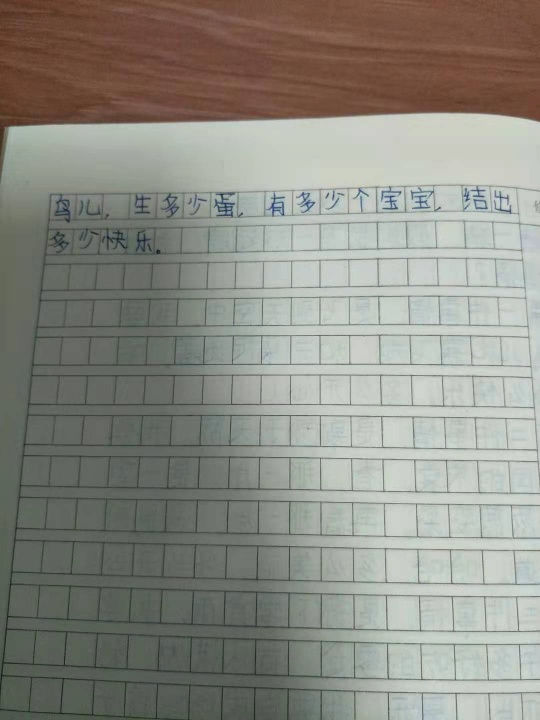 鸟儿，生多少蛋，有多少个宝宝，结出
多少快乐。